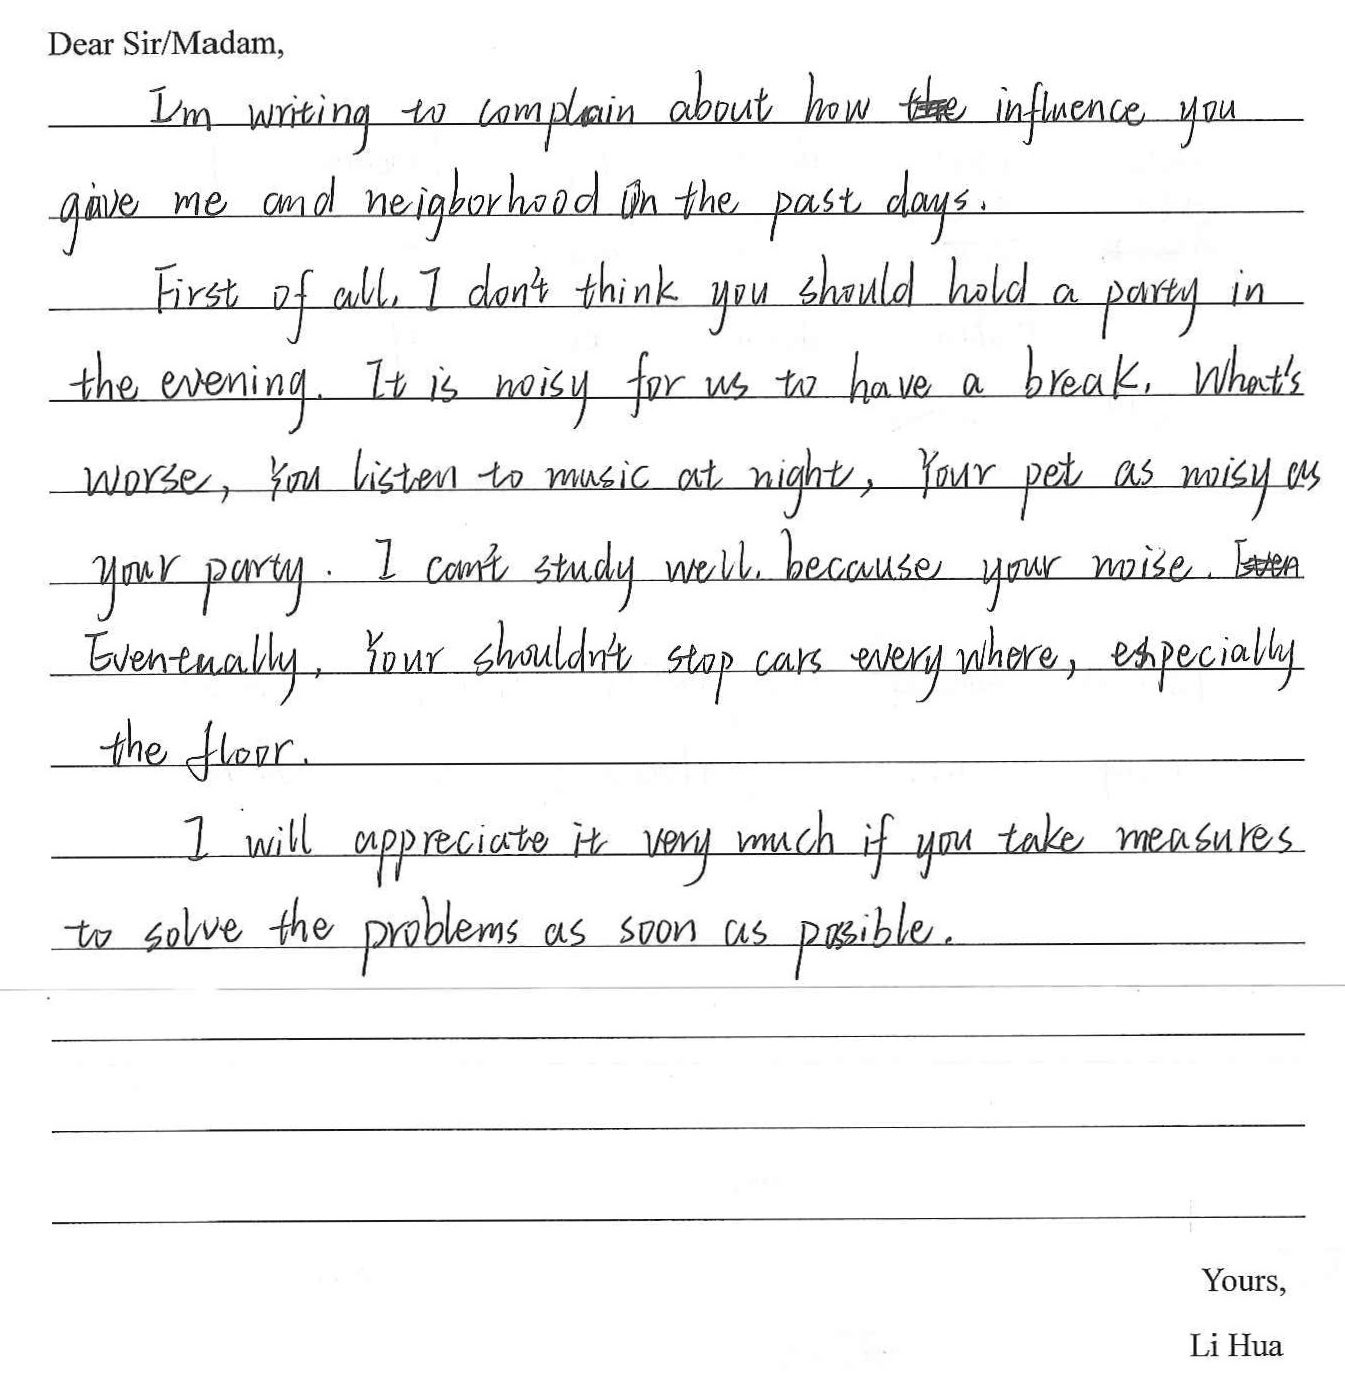 Dear Sir/Madam,
I'm writing to complain about how influence you
give me and neigborhood in the past days.
First of all, I don't think you should hold a party in
the evening. It is noisy for us to have a break. What's
worse, You listen to music at night, Your pet as noisy as
your party. I can't study well. because your noise.
Eventually, Your shouldn't stop cars everywhere, especially
the floor.
I will appreciate it very much if you take measures
to solve the problems as soon as possible.
Yours,
Li Hua